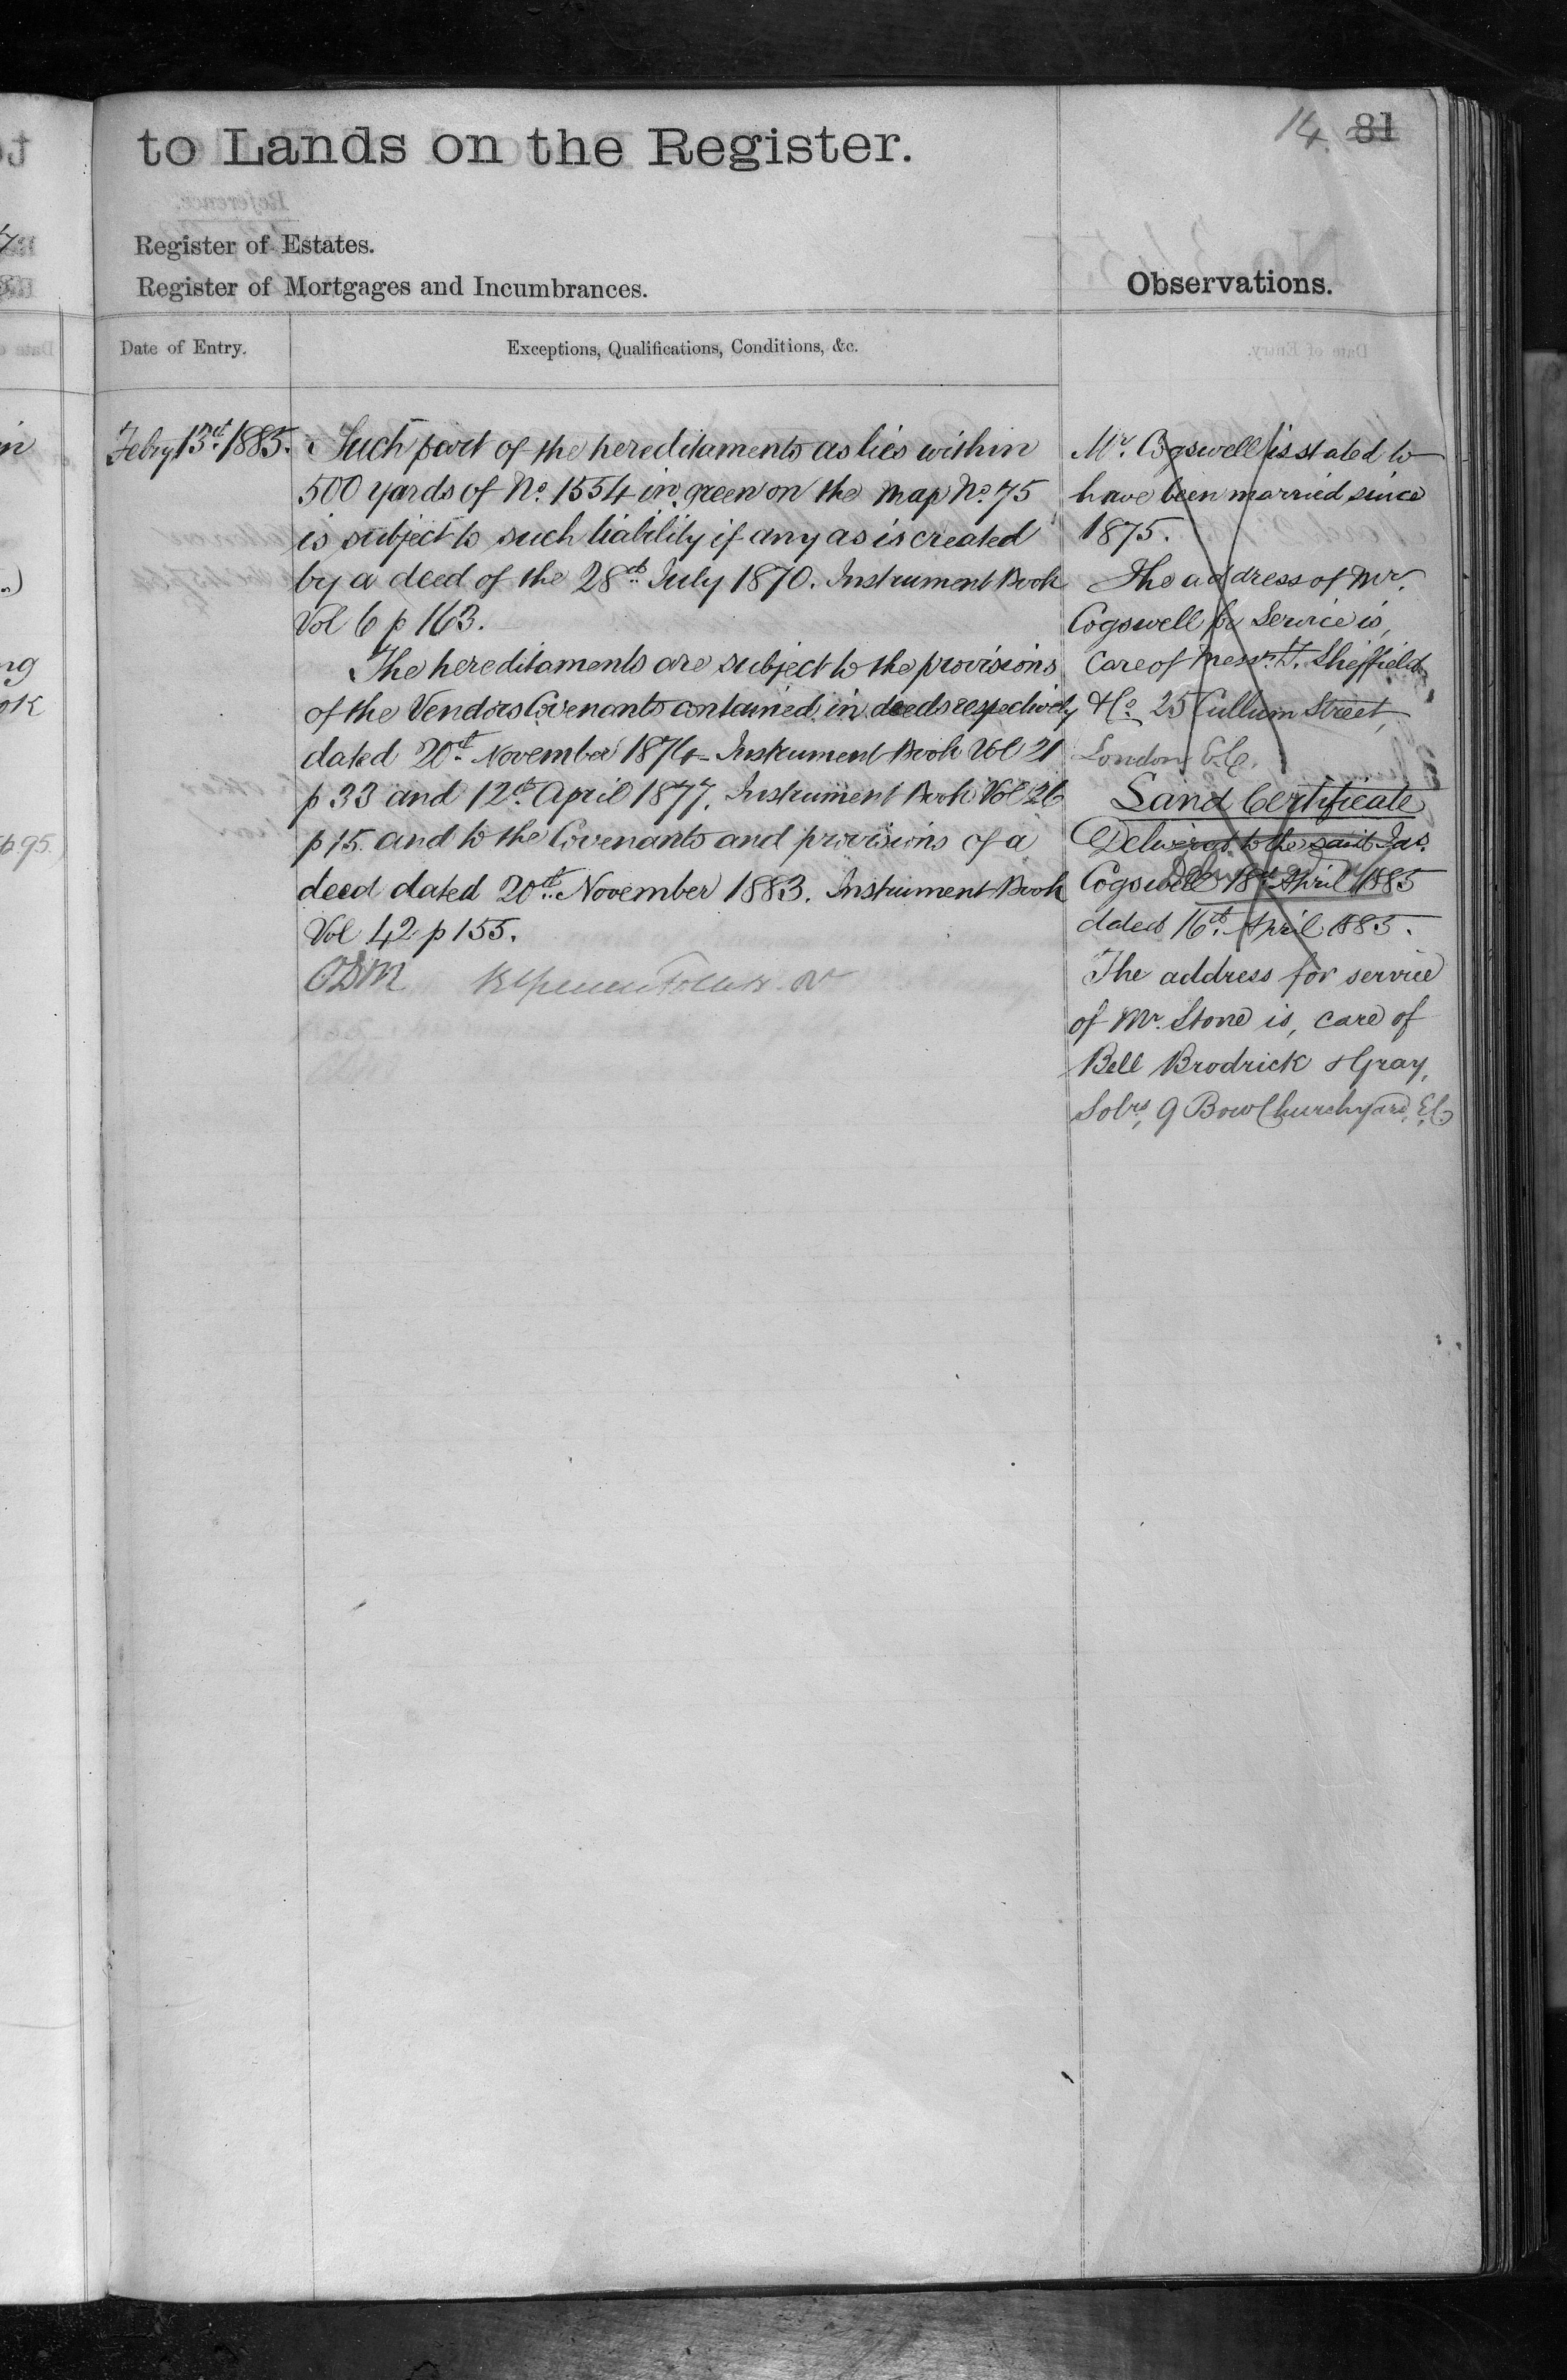 to Lands on the Register.
14. 81
Register of Estates.
Register of Mortgages and Incumbrances.
Observations.
Date of Entry.
Exceptions, Qualifications, Conditions, &c.
Febry 13th 1885.
Such part of the hereditaments as lies within
500 yards of No. 1554 in green on the map No. 75
is subject to such liability if any as is created
by a deed of the 28th July 1870. Instrument Book
Vol 6 p 163.
The hereditaments are subject to the provisions
of the Vendors Covenants contained in deeds respectively
dated 20th November 1874 Instrument Book Vol 21
p 33 and 12th April 1877. Instrument Book Vol 26
p 15. and to the Covenants and provisions of a
deed dated 20th November 1883. Instrument Book
Vol 42 p 155.
Mr. Cogswell is stated to
have been married since
1875.
The address of Mr.
Cogswell for Service is,
Care of Messrs. T. Sheffield
&Co. 25 Cullum Street,
London E.C.
Land Certificate
Delivered to the said Jas.
Cogswell 18th April 1885
dated 16th April 1885.
The address for service
of Mr. Stone is, care of
Bell Brodrick & Gray,
Solrs, 9 Bow Churchyard, E.C.